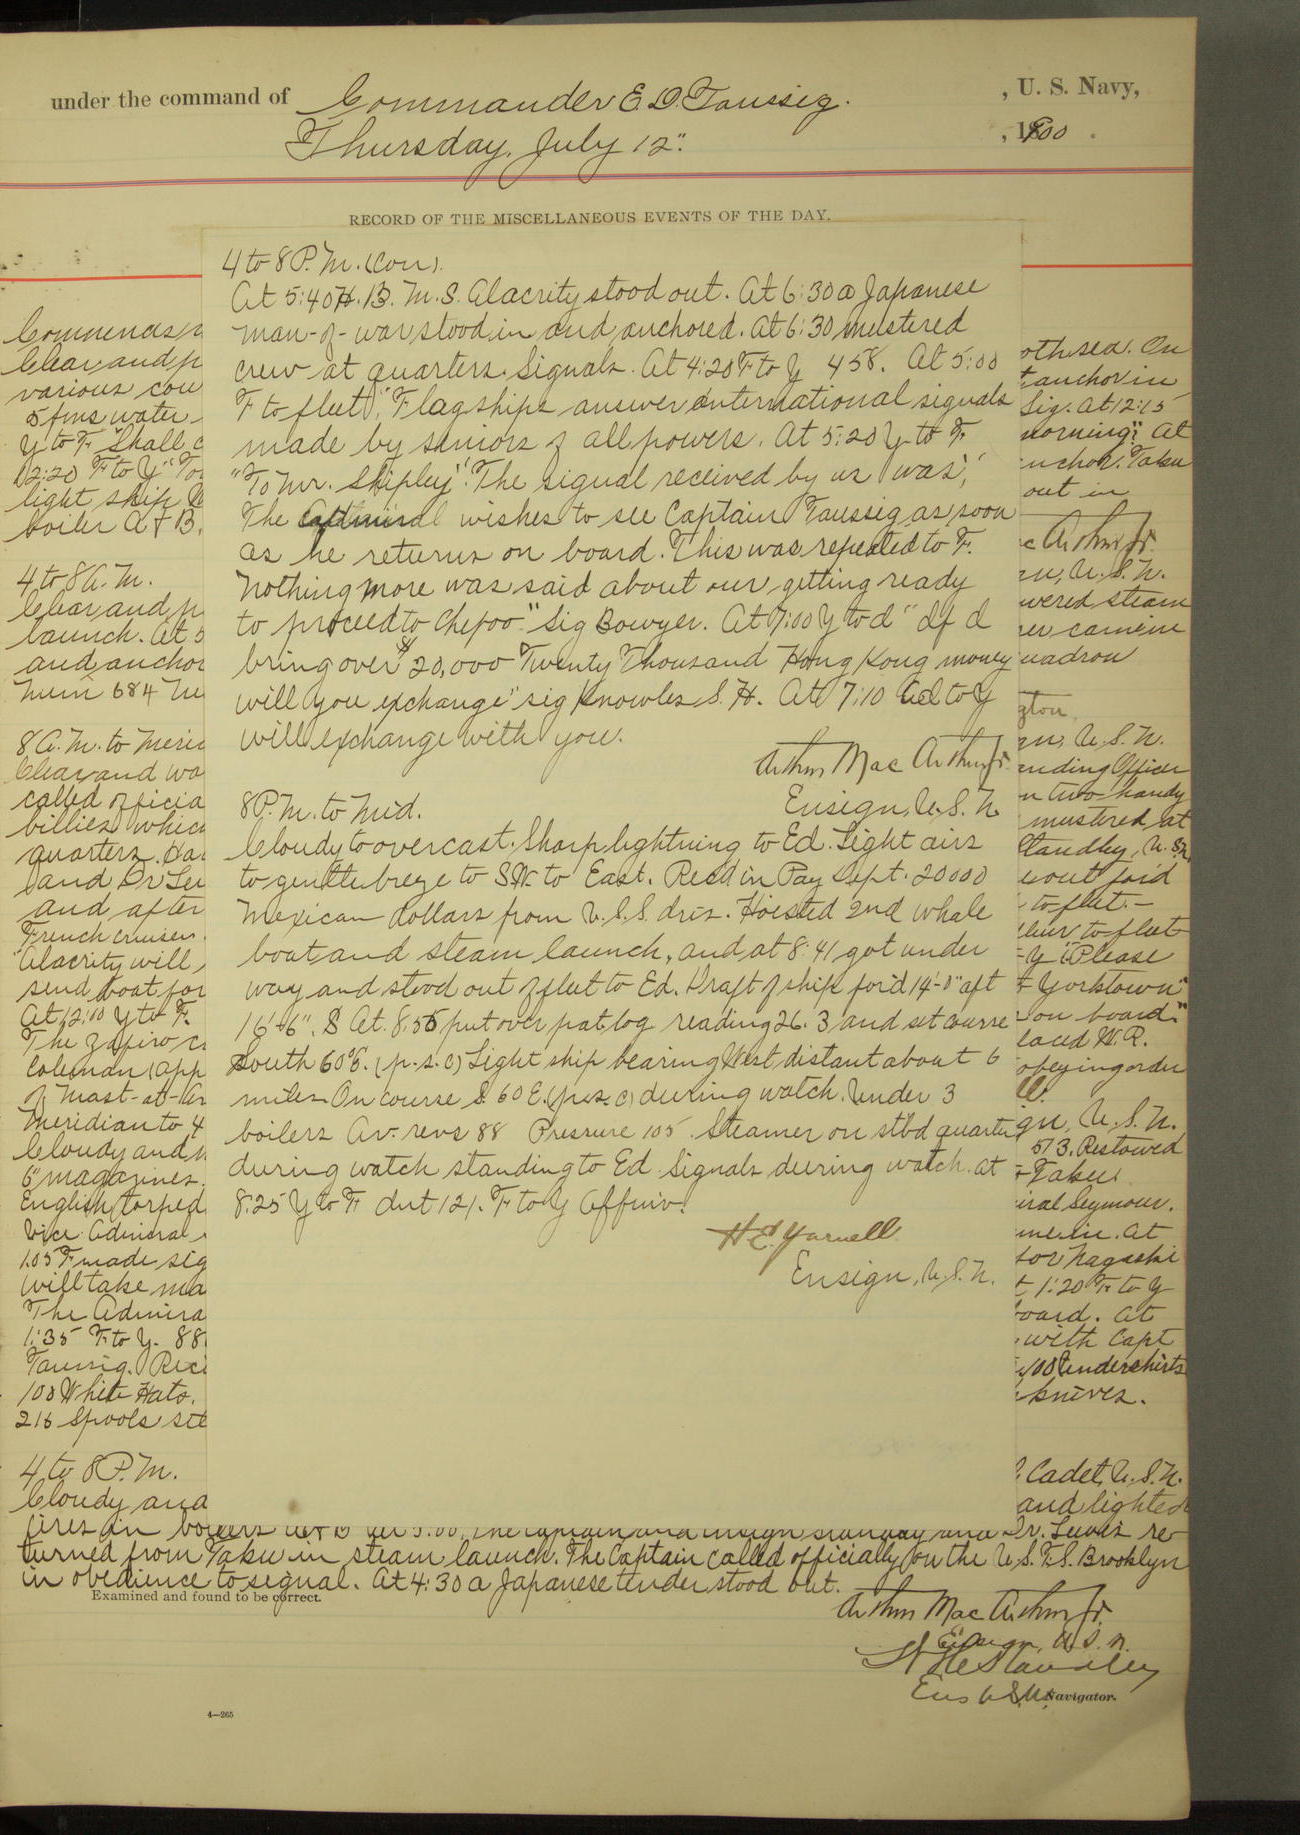 under the command of Commander E. D. Taussig. , U. S. Navy,
Thursday, July 12". , 1900 .
RECORD OF THE MISCELLANEOUS EVENTS OF THE DAY.
4 to 8 P.M. (Con).
At 5:40 H.B.M.S. Alacrity stood out. At 6:30 a Japanese
man-of-war stood in and anchored. At 6:30 mustered
crew at quarters. Signals. At 4:20 F to Y 458. At 5:00
F to fleet; "Flagships answer international signals
made by seniors of all powers. At 5:20 Y to F.
"To Mr. Shipley". The signal received by us was,
The Admiral wishes to see Captain Taussig as soon
as he returns on board. This was repeated to F.
Nothing more was said about our getting ready
to proceed to Chefoo" Sig Bowyer. At 7:00 Y to d "If d
bring over $20,000 Twenty Thousand Hong Kong money
will you exchange" sig Knowles S.H. At 7:10 to Y
will exchange with you.
Arthur Mac Arthur Jr.
Ensign, U.S.N.
8 P.M. to Mid.
Cloudy to overcast. Sharp lightning to Ed. Light airs
to gentle breeze to SW. to East. Recd in Pay Dept. 20000
Mexican dollars from U.S.S. Iris. Hoisted 2nd whale
boat and steam launch, and at 8:41 got under
way and stood out of fleet to Ed. Draft of ship for'd 14'-0" aft
16'-6". At 8.55 put over pat. log reading 26.3 and set course
South 60°E. (p.s.c) Light ship bearing West distant about 6
miles On course S. 60 E. (p.s.c) during watch. Under 3
boilers Av. revs 88 Pressure 105. Steamer on stbd quarter
during watch standing to Ed. Signals during watch. At
8:25 Y to F Int 121. F to Y Affirm.
H E Yarnell
Ensign, U.S.N.
Clear and p
various cou
5 fms water
Y to F. "Shall
12:20 F to Y "To
light ship
boiler A & B.
4 to 8 A.M.
Clear and p
launch. At 5
and anchor
8 A.M. to Merid
Clear and wa
called officia
billies which
quarters.
and after
French cruiser
"Alacrity will
send boat for
At 12:10 Y to F.
The Zafiro
Coleman (app
of Mast-at-Ar
Meridian to 4
Cloudy and
6" magazines.
English torped
Vice Admiral
1.05 F made sig
will take ma
The Admira
1:35 F to Y. 88
Taussig. Rec
100 White Hats.
216 Spools
4 to 8 P.M.
Cloudy and
oth sea. On
anchor in
Sig. At 12:15
morning". At
anchor. Taku
out in
c Arthur Jr.
gn, U.S.N.
wered steam
uadron
gton,
gn, U.S.N.
anding Officer
n two handy
mustered at
Standley, U.S.N.
to fleet.-
to fleet
Y "Please
Yorktown"
on board."
obeying order
gn, U.S.N.
573. Restowed
Taku.
iral Seymour.
At
tor Nagashi
t 1:20 F to Y
board. At
with Capt
100 Undershirts
knives.
Cadet, U.S.N.
and lighted
fires in boilers At 5:00, the Captain and Ensign Standley and Dr. Leuvis re-
turned from Taku in steam launch. The Captain called officially on the U.S.F.S. Brooklyn
in obedience to signal. At 4:30 a Japanese tender stood out.
Examined and found to be correct.
Arthur Mac Arthur Jr.
Ensign, U.S.N.
W H Standley
Ens U.S.N. Navigator.
4—265